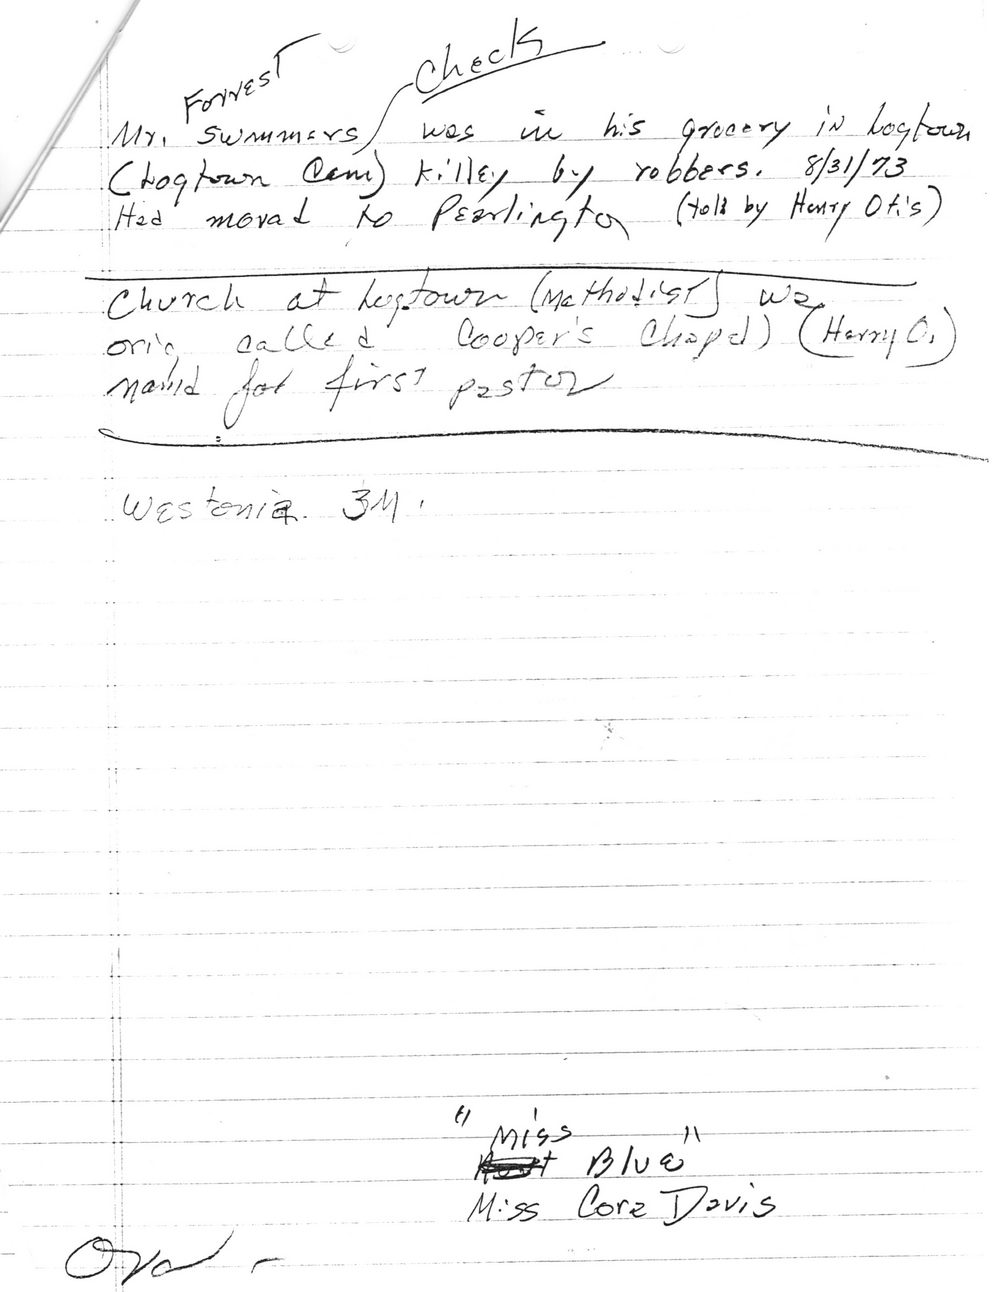 Check
Forrest
Mr. Swmmers was in his grocery in Logtown
(Logtown Cem) killey by robbers. 8/31/73
Had moved to Pearlington (told by Henry Otis)
Church at Logtown (Methodist) wa
orig called Cooper's Chapel) (Henry O.)
named for first pastor
Westonia. 3M.
"Miss
Blue"
Miss Cora Davis
Over -